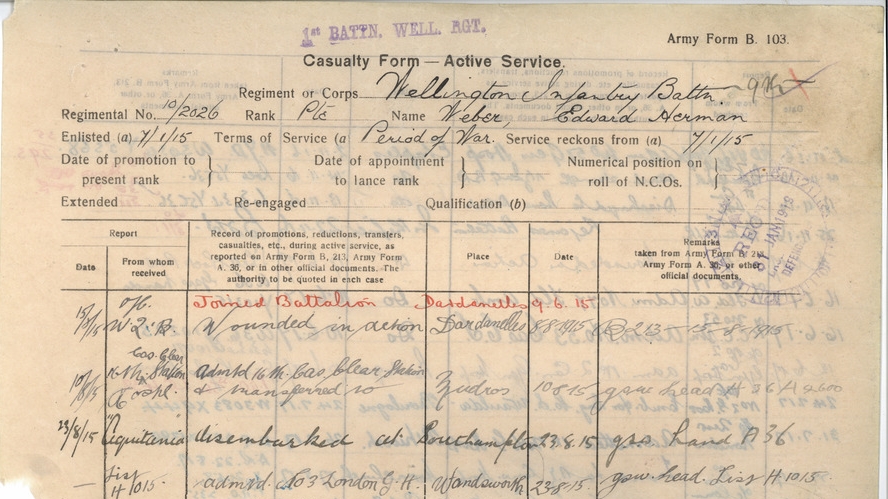 1st BATTN. WELL. RGT.
Army Form B. 103.
Casualty Form — Active Service.
Regiment or Corps Wellington Infantry Battn.
Regimental No. 10/2026 Rank Pte Name Weber, Edward Herman
Enlisted (a) 7/1/15 Terms of Service (a Period of War. Service reckons from (a) 7/1/15
Date of promotion to present rank } Date of appointment to lance rank } Numerical position on roll of N.C.Os. }
Extended Re-engaged Qualification (b)
Report
Date
From whom received
Record of promotions, reductions, transfers, casualties, etc., during active service, as reported on Army Form B, 213, Army Form A. 36, or in other official documents. The authority to be quoted in each case
Place
Date
Remarks taken from Army Form B. 213, Army Form A. 36, or other official documents.
Joined Battalion Dardanelles 9.6.15
Wounded in action Dardanelles 8.8.1915 B 213 — 15-8-1915
10/8/15 16th Cas. Clear. Station Hospl. admtd 16th Cas. Clear. Station & transferred to Mudros 10.8.15 gsw head A 36
23/8/15 Aquitania disembarked at Southampton 23.8.15 gsw hand A 36
— List H 1015. admtd. No 3 London G.H. Wandsworth 23.8.15 gsw head. List H 1015.